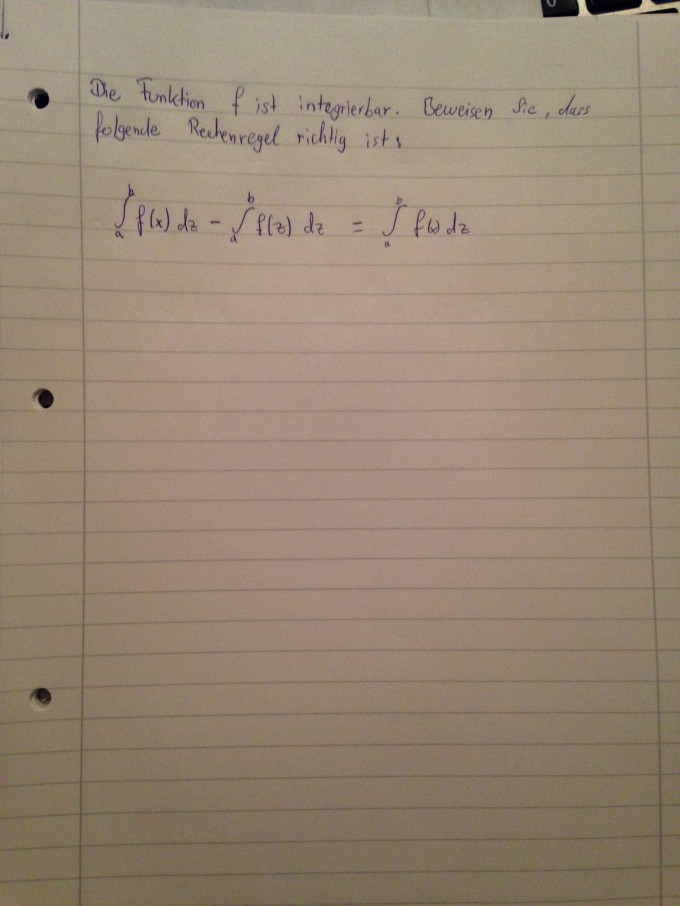 Die Funktion f ist integrierbar. Beweisen Sie, dass
folgende Rechenregel richtig ist:
∫ₐᵇ f(x) dz - ∫ₐᵇ f(z) dz = ∫ₐᵇ f(x) dz